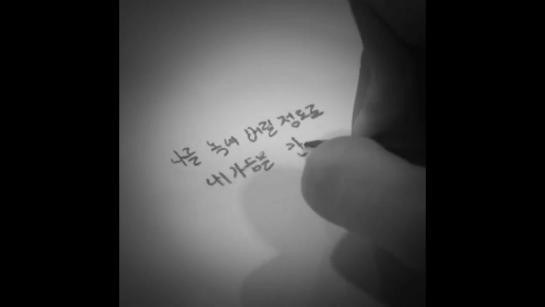 나를 녹여 버릴 정도로
내 가슴을